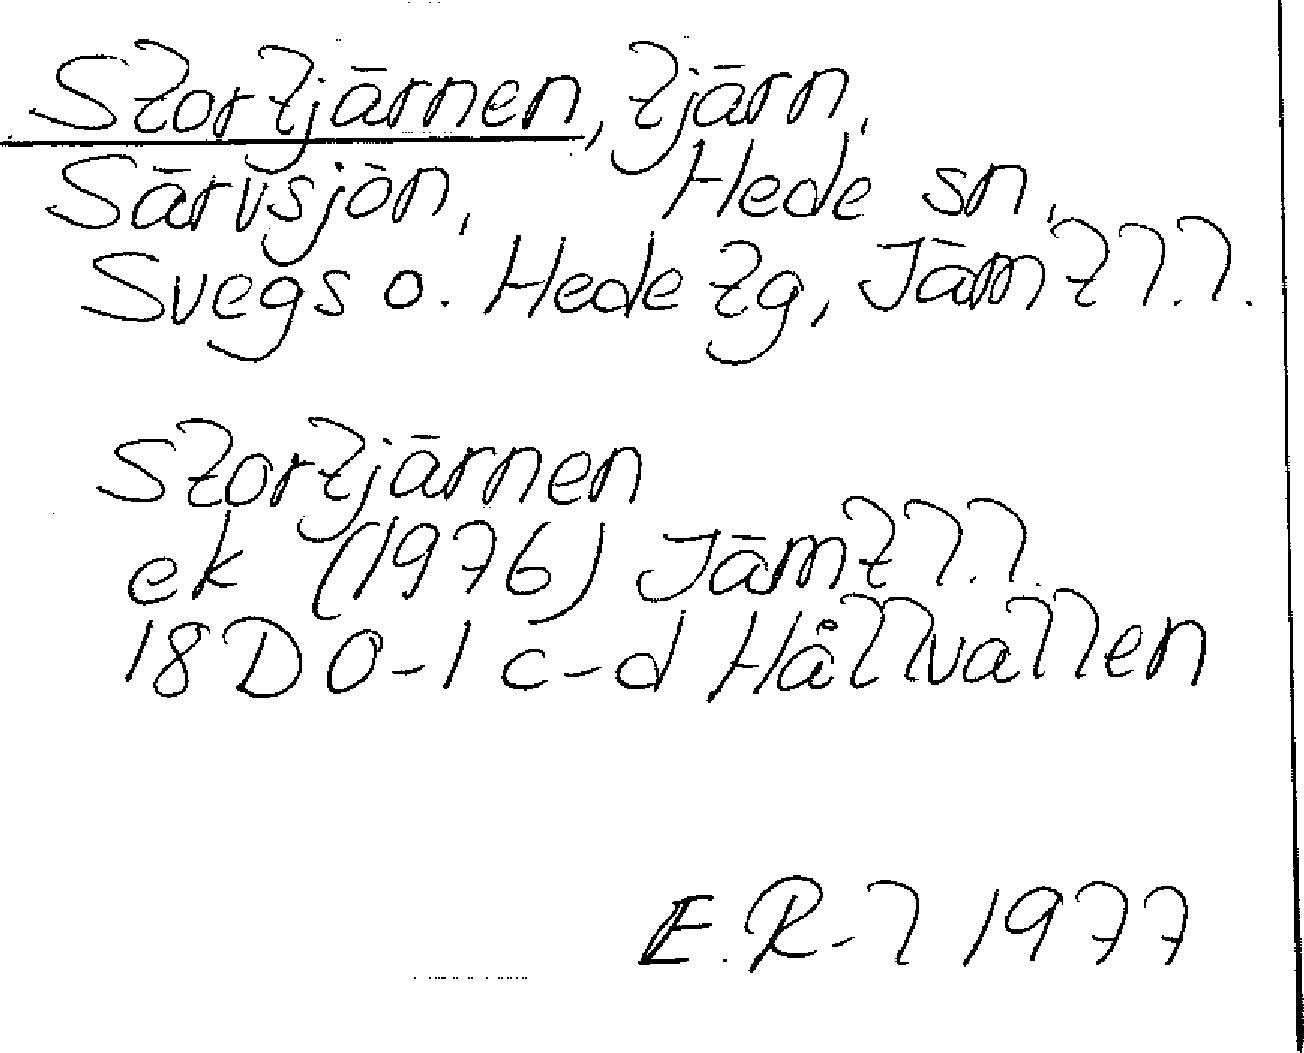 Stortjärnen, tjärn,
Särvsjön, Hede sn,
Svegs o. Hede tg, Jämtl.l.
Stortjärnen
ek (1976) Jämtl.l.
18D 0-1 c-d Hållvallen
E. R-l 1977